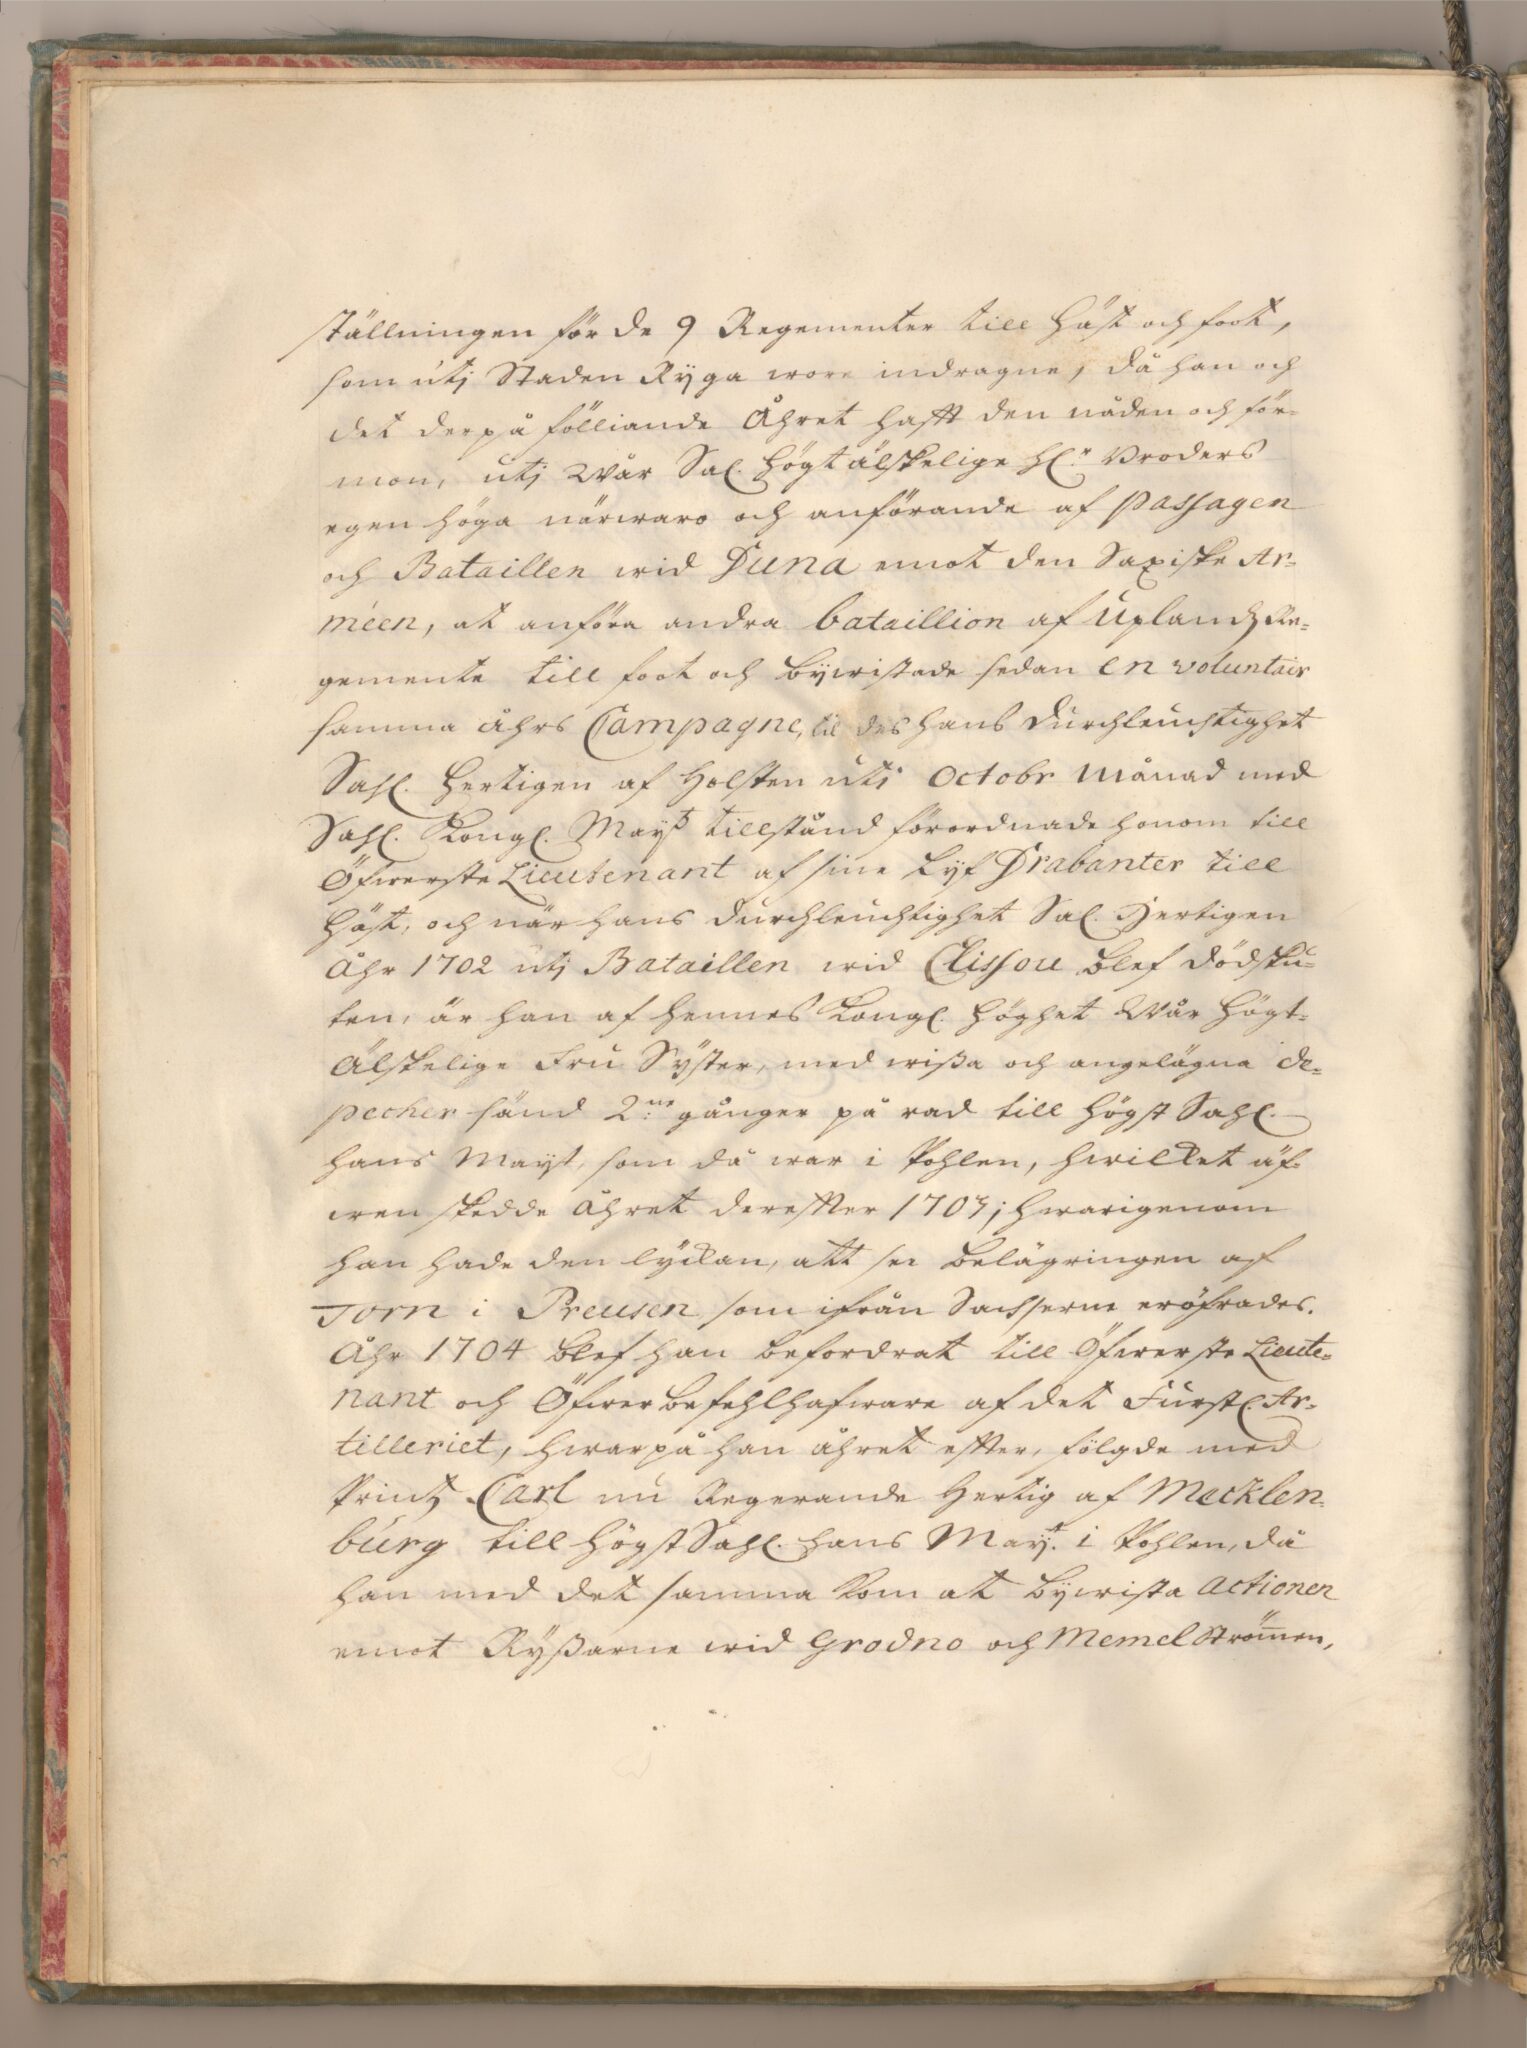 ställningen för de 9 Regementer till häst och foot,
som utj Staden Ryga wore indragne, då han och
det derpå fölliande Åhret hafft den nåden och för-
mon, utj Wår Sal. högtälskelige H:r Broders
egen höga närwaro och anförande af passagen
och Bataillen wid Duna emot den Saxiske Ar-
méen, at anföra andra bataillion af Uplandz Re-
gemente till foot och bywistade sedan en voluntair
samma åhrs Campagne, til des hans Durchleuchtighet
Sahl. Hertigen af Holsten uti Octobr Månad med
Sahl. Kongl. Mayt tillstånd förordnade honom till
Öfwerste Lieutenant af sine Lyf Drabanter till
häst, och när hans Durchleuchtighet Sal. Hertigen
Åhr 1702 utj Bataillen wid Clissou blef dödsku-
ten, är han af hennes Kongl. höghet Wår högt-
Älskelige Fru Syster, med wißa och angelägna de-
pecher sänd 2:ne gånger på rad till Högst Sahl.
hans Mayt, som då war i Pohlen, hwilket äf-
wen skedde åhret derefter 1703; hwarigenom
han hade den lyckan, att se belägringen af
Torn i Preusen som ifrån Sachserne eröfrades.
Åhr 1704 blef han befordrat till Öfwerste Lieute-
nant och Öfwerbefehlhafware af det Fürstl. Ar-
tilleriet, hwarpå han åhret efter, fölgde med
Printz Carl nu Regerande Hertig af Mecklen-
burg till Högst Sahl. hans Mayt. i Pohlen, då
han med det samma kom at bywista actionen
emot Ryßarne wid Grodno och Memelströmen,